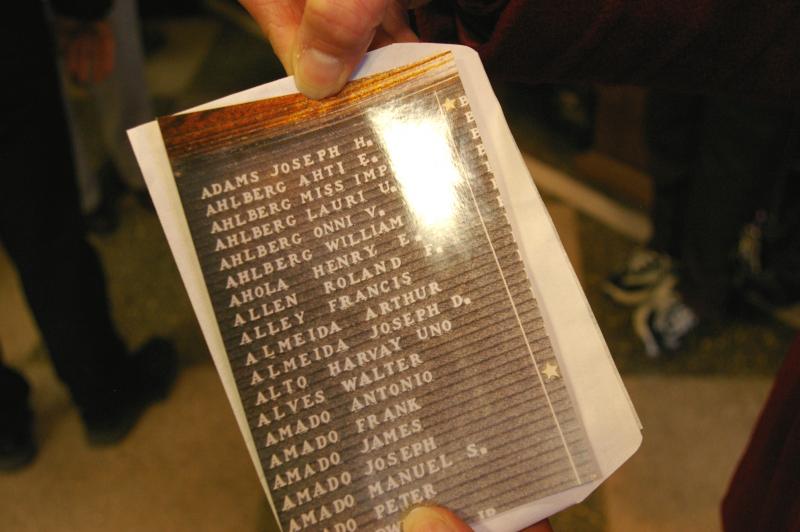 ADAMS JOSEPH H.
AHLBERG AHTI E.
AHLBERG MISS IMP
AHLBERG LAURI U.
AHLBERG ONNI V.
AHLBERG WILLIAM
AHOLA HENRY E.
ALLEN ROLAND F.
ALLEY FRANCIS
ALMEIDA ARTHUR
ALMEIDA JOSEPH D.
ALTO HARVAY UNO
ALVES WALTER
AMADO ANTONIO
AMADO FRANK
AMADO JAMES
AMADO JOSEPH
AMADO MANUEL S.
ADO PETER
JR